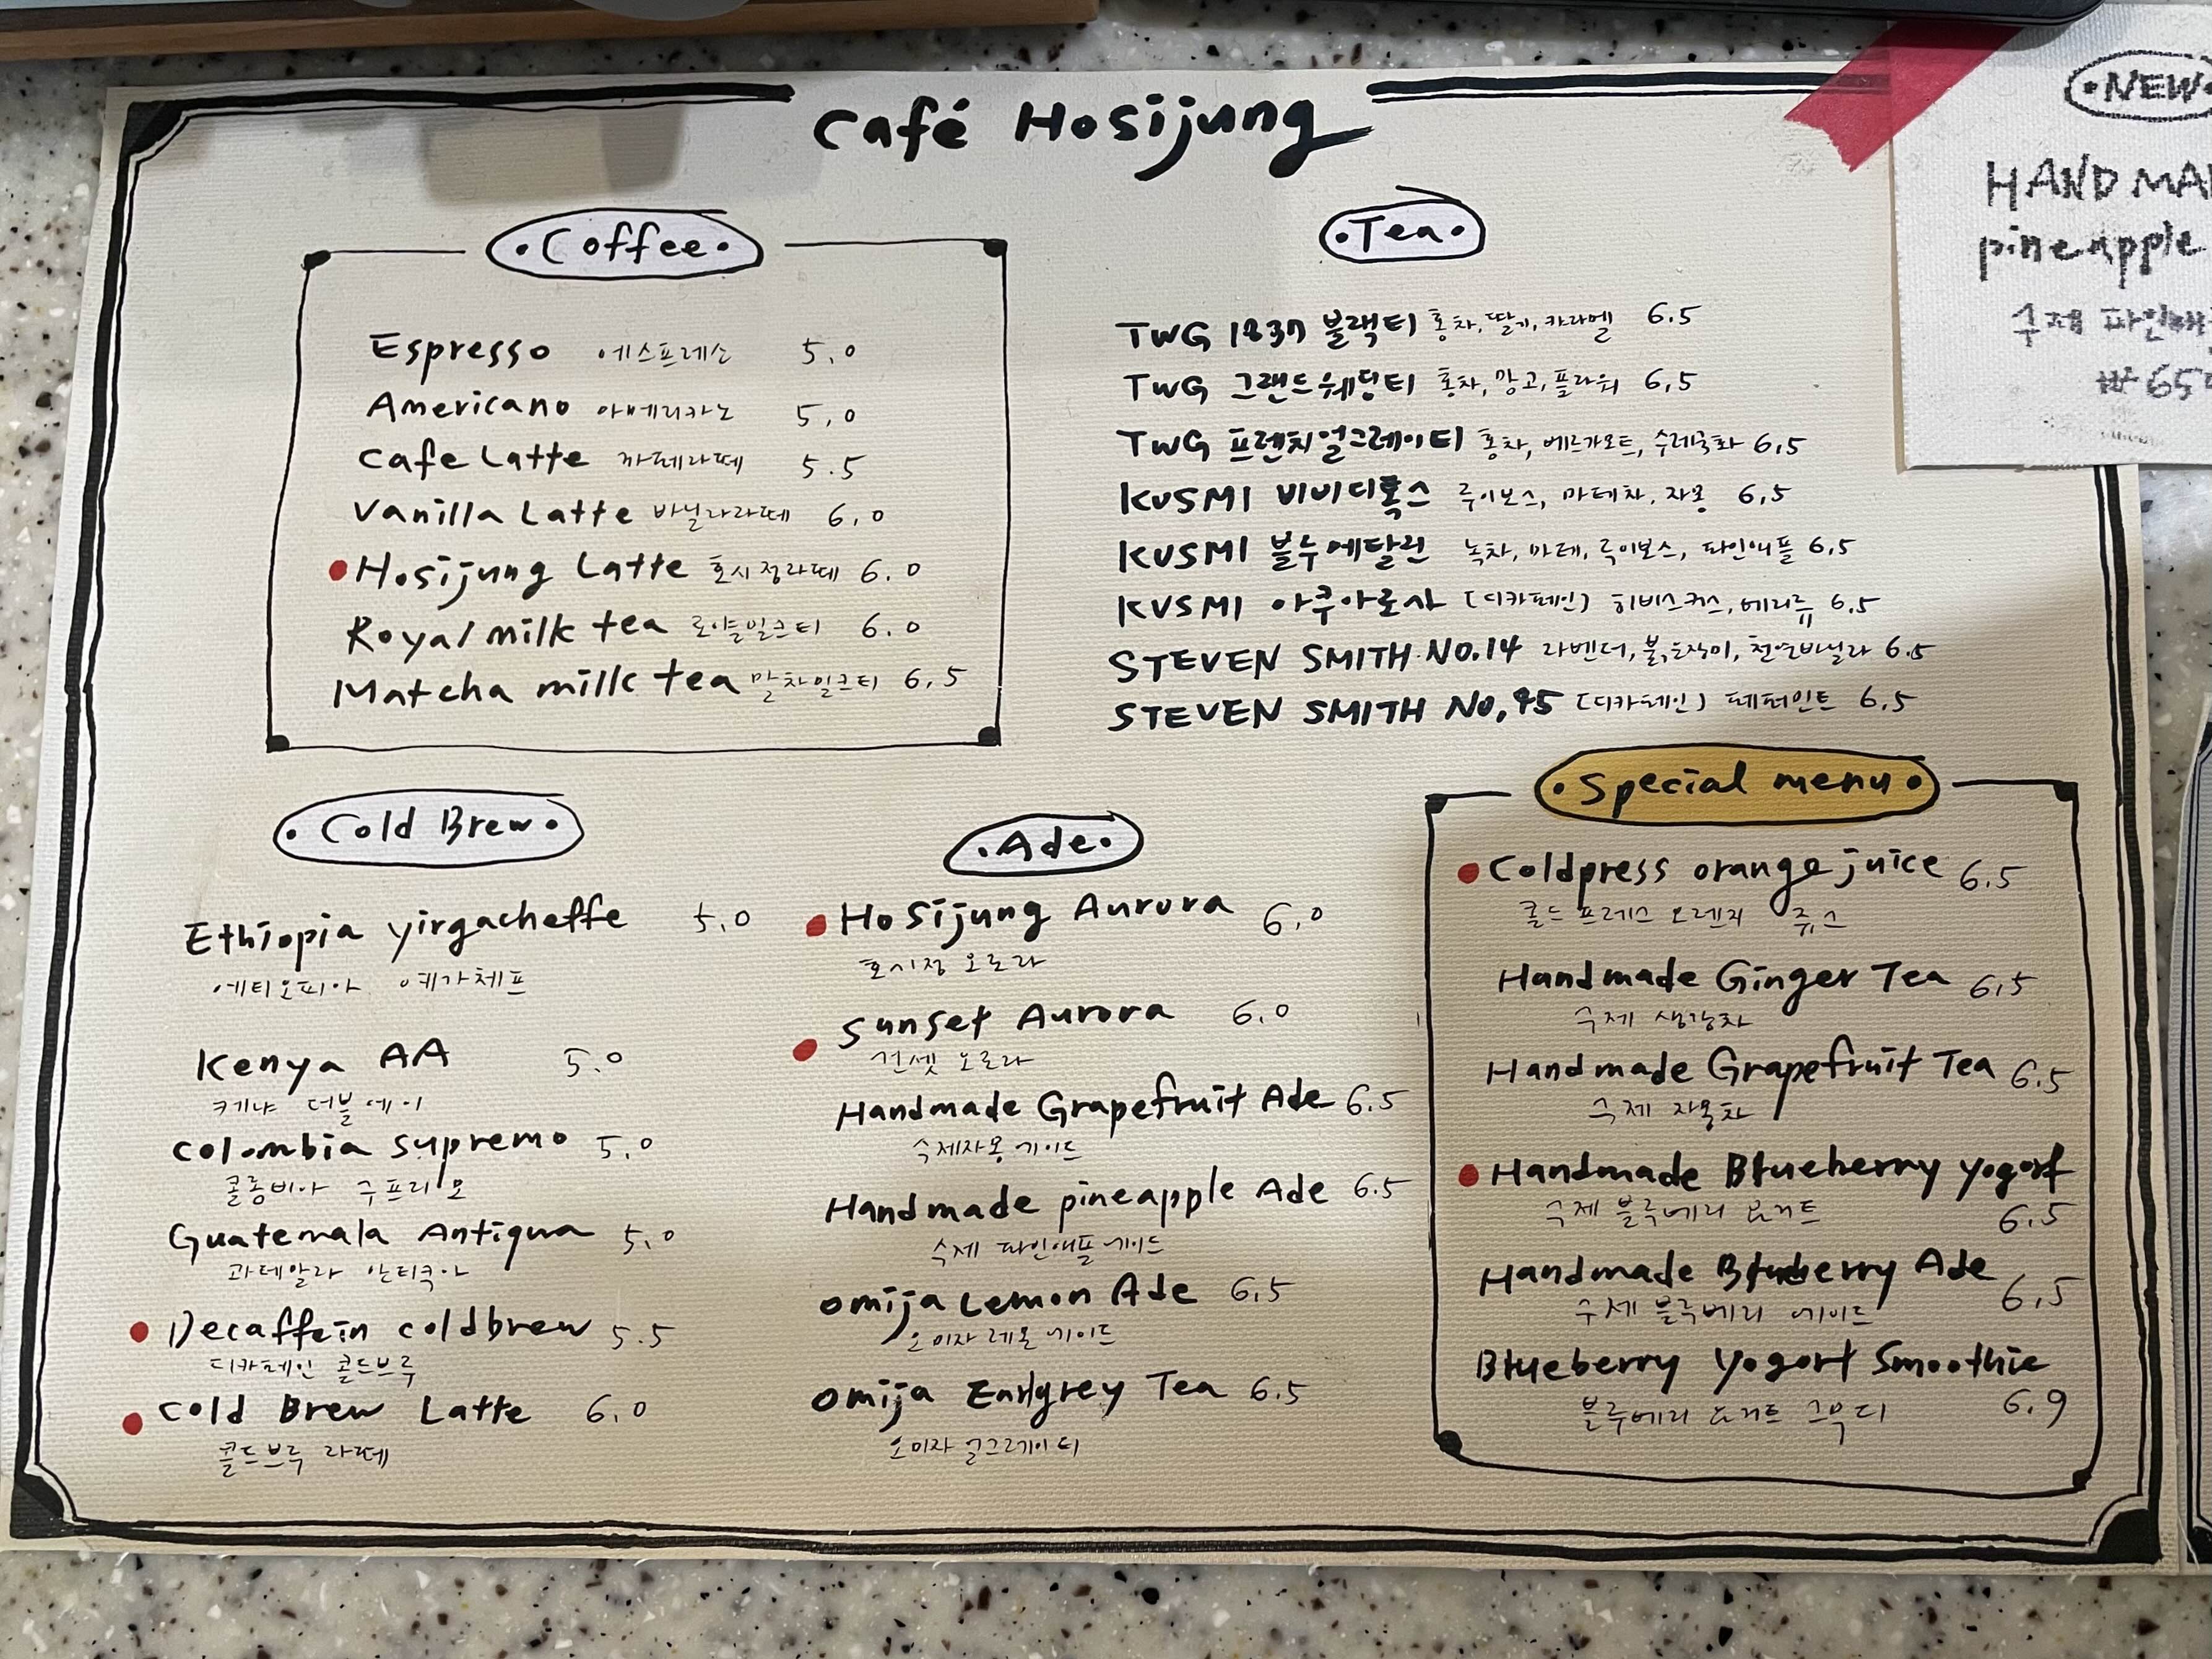 Café Hosijung
·Coffee·
Espresso 에스프레소 5.0
Americano 아메리카노 5.0
Cafe Latte 까페라떼 5.5
Vanilla Latte 바닐라라떼 6.0
Hosijung Latte 호시정라떼 6.0
Royal milk tea 로얄밀크티 6.0
Matcha milk tea 말차밀크티 6.5
·Tea·
TWG 1837 블랙티 홍차, 딸기, 카라멜 6.5
TWG 그랜드웨딩티 홍차, 망고, 플라워 6.5
TWG 프렌치얼그레이티 홍차, 베르가모트, 수레국화 6.5
KUSMI 비비디톡스 루이보스, 마테차, 자몽 6.5
KUSMI 블루에달린 녹차, 마테, 루이보스, 파인애플 6.5
KUSMI 아쿠아로사 (디카페인) 히비스커스, 베리류 6.5
STEVEN SMITH NO.14 라벤더, 천연바닐라 6.5
STEVEN SMITH NO.45 (디카페인) 페퍼민트 6.5
·Cold Brew·
Ethiopia yirgacheffe 5.0
에티오피아 예가체프
Kenya AA 5.0
케냐 더블에이
Colombia supremo 5.0
콜롬비아 수프리모
Guatemala Antigua 5.0
과테말라 안티구아
Decaffein coldbrew 5.5
디카페인 콜드브루
Cold Brew Latte 6.0
콜드브루 라떼
·Ade·
Hosijung Aurora 6.0
호시정 오로라
Sunset Aurora 6.0
선셋 오로라
Handmade Grapefruit Ade 6.5
수제자몽에이드
Handmade pineapple Ade 6.5
수제 파인애플에이드
Omija Lemon Ade 6.5
오미자 레몬 에이드
Omija Earlgrey Tea 6.5
오미자 얼그레이티
·Special menu·
Coldpress orange juice 6.5
콜드프레스 오렌지 쥬스
Handmade Ginger Tea 6.5
수제 생강차
Handmade Grapefruit Tea 6.5
수제 자몽차
Handmade Blueberry yogort
수제 블루베리 요거트 6.5
Handmade Blueberry Ade 6.5
수제 블루베리 에이드
Blueberry Yogort Smoothie
블루베리 요거트 스무디 6.9
·NEW·
HAND MA
pineapple
수제 파인애
₩65